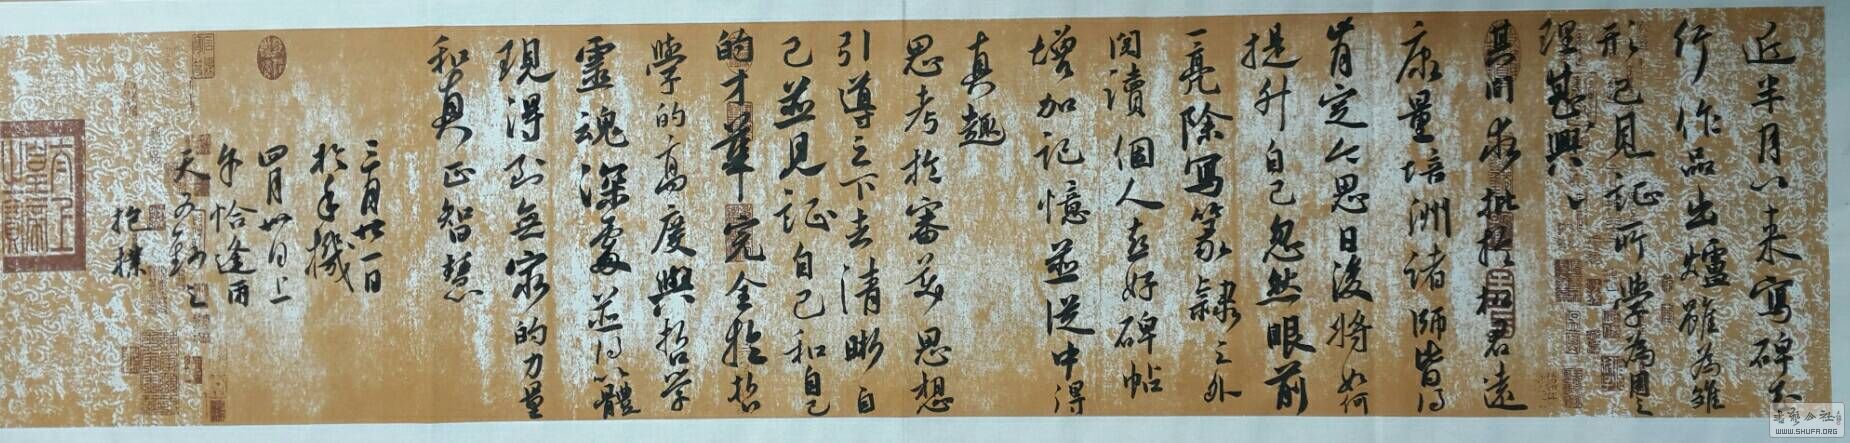 近半月以来寫碑不
行作品出爐雖為雛
形已見証所學為用之
理甚興
其間求批於柏君遠
康量培洲諸師皆得
肯定今思日後將如何
提升自己忽然眼前
一亮除寫篆隸之外
閱讀個人喜好碑帖
增加記憶並從中得
真趣
思考於審美思想
引導之下去清晰自
己並見証自己和自己
的才華完全於哲
學的高度與哲学
靈魂深處並得以體
現得到無窮的力量
和真正智慧
三月廿一日
於手機
四月廿日上
午恰逢雨
天又鈔之
抱樸
書藝公社
WWW.SHUFA.ORG